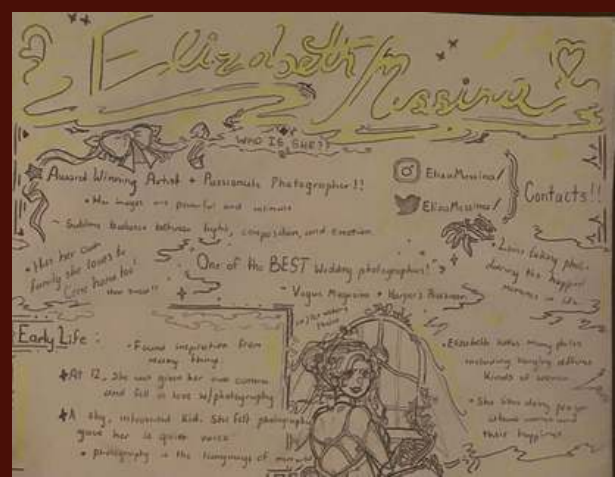 Elizabeth Messina
WHO IS SHE??
Award Winning Artist + Passionate Photographer!!
• Her images are powerful and intimate
~ Sublime balance between light, composition, and emotion
ElizaMessina/
ElizaMessina/
Contacts!!
• Has her own
family she loves to
come home too!
How sweet!!
"One of the BEST Wedding photographers!"
~ Vogue Magazine + Harper's Bazaar
• Loves taking
during the happy
moments in
Early Life:
• Found inspiration from
many things.
At 12, She was given her own camera
and fell in love w/photography
A shy, introverted Kid. She felt photography
gave her is quiet voice
• photography is the language of
• Elizabeth takes many
including
Kinds of women
• She likes doing
women and
their happiness